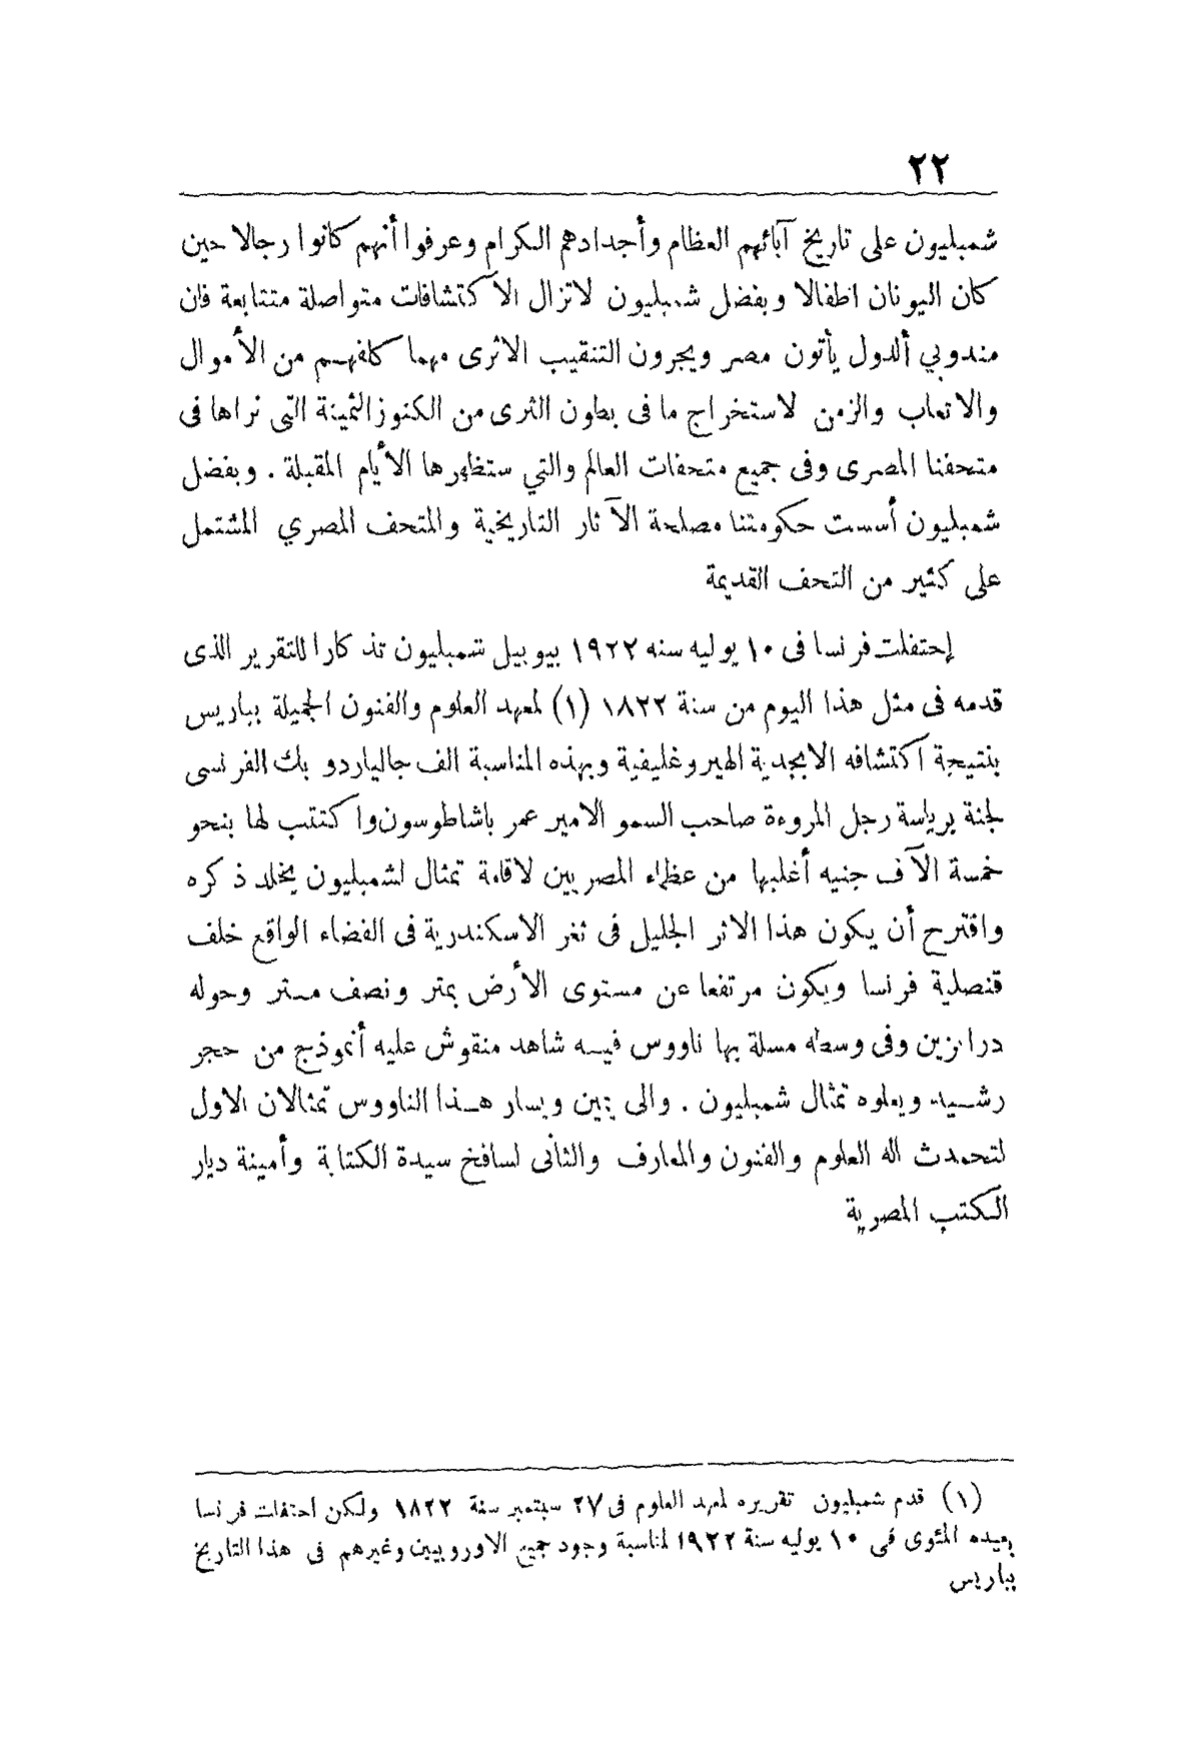 ٢٢
شمبليون على تاريخ آبائهم العظام وأجدادهم الكرام وعرفوا أنهم كانوا رجالا حين
كان اليونان اطفالا وبفضل شمبليون لاتزال الاكتشافات متواصلة متتابعة فان
مندوبي ألدول يأتون مصر ويجرون التنقيب الاثرى مهما كلفهم من الأموال
والاتعاب والزمن لاستخراج ما فى بطون الثرى من الكنوز الثمينة التى نراها فى
متحفنا المصرى وفى جميع متحفات العالم والتي ستظهرها الأيام المقبلة . وبفضل
شمبليون أسست حكومتنا مصلحة الآثار التاريخية والمتحف المصري المشتمل
على كثير من التحف القديمة
إحتفلت فرنسا فى ١٠ يوليه سنه ١٩٢٢ بيوبيل شمبليون تذكارا للتقرير الذى
قدمه فى مثل هذا اليوم من سنة ١٨٢٢ (١) لمعهد العلوم والفنون الجميلة بباريس
بنتيجة اكتشافه الابجدية الهيروغليفية وبهذه المناسبة الف جالياردو بك الفرنسى
لجنة برياسة رجل المروءة صاحب السمو الامير عمر باشاطوسون واكتتب لها بنحو
خمسة الآف جنيه أغلبها من عظماء المصريين لاقامة تمثال لشمبليون يخلد ذكره
واقترح أن يكون هذا الاثر الجليل فى ثغر الاسكندرية فى الفضاء الواقع خلف
قنصلية فرنسا ويكون مرتفعا عن مستوى الأرض بمتر ونصف متر وحوله
درابزين وفى وسطه مسلة بها ناووس فيه شاهد منقوش عليه أنموذج من حجر
رشيد ويعلوه تمثال شمبليون . والى يمين ويسار هذا الناووس تمثالان الاول
لتحمدث اله العلوم والفنون والمعارف والثانى لسافخ سيدة الكتابة وأمينة ديار
الكتب المصرية
(١) قدم شمبليون تقريره لمعهد العلوم فى ٢٧ سبتمبر سنة ١٨٢٢ ولكن احتفلت فرنسا
بعيده المئوى فى ١٠ يوليه سنة ١٩٢٢ لمناسبة وجود جميع الاوروبيين وغيرهم فى هذا التاريخ
بباريس